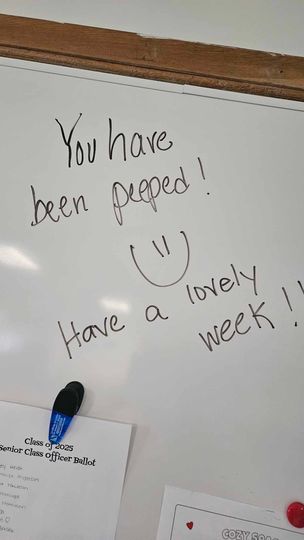 You have
been peeped!
Have a lovely
week!!
Class of 2025
Senior Class Officer Ballot
COZY